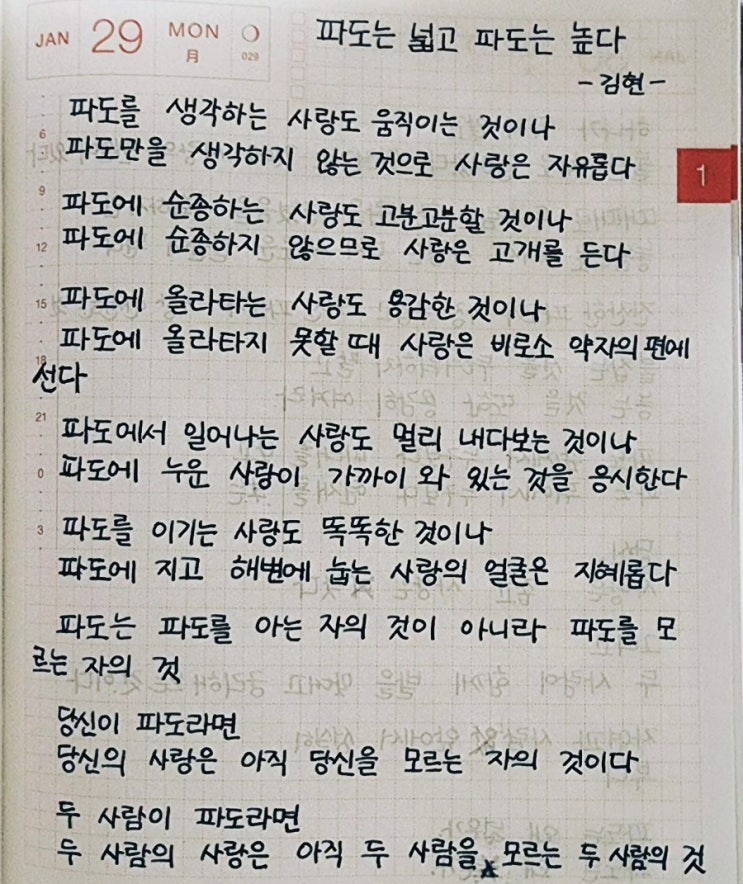 JAN 29 MON 月 029
파도는 넓고 파도는 높다
-김현-
파도를 생각하는 사랑도 움직이는 것이나
6
파도만을 생각하지 않는 것으로 사랑은 자유롭다
1
9
파도에 순종하는 사랑도 고분고분할 것이나
12
파도에 순종하지 않으므로 사랑은 고개를 든다
15
파도에 올라타는 사랑도 용감한 것이나
파도에 올라타지 못할 때 사랑은 비로소 약자의 편에
18
선다
21
파도에서 일어나는 사랑도 멀리 내다보는 것이나
0
파도에 누운 사랑이 가까이 와 있는 것을 응시한다
3
파도를 이기는 사랑도 똑똑한 것이나
파도에 지고 해변에 눕는 사랑의 얼굴은 지혜롭다
파도는 파도를 아는 자의 것이 아니라 파도를 모
르는 자의 것
당신이 파도라면
당신의 사랑은 아직 당신을 모르는 자의 것이다
두 사람이 파도라면
두 사람의 사랑은 아직 두 사람을 모르는 두 사람의 것